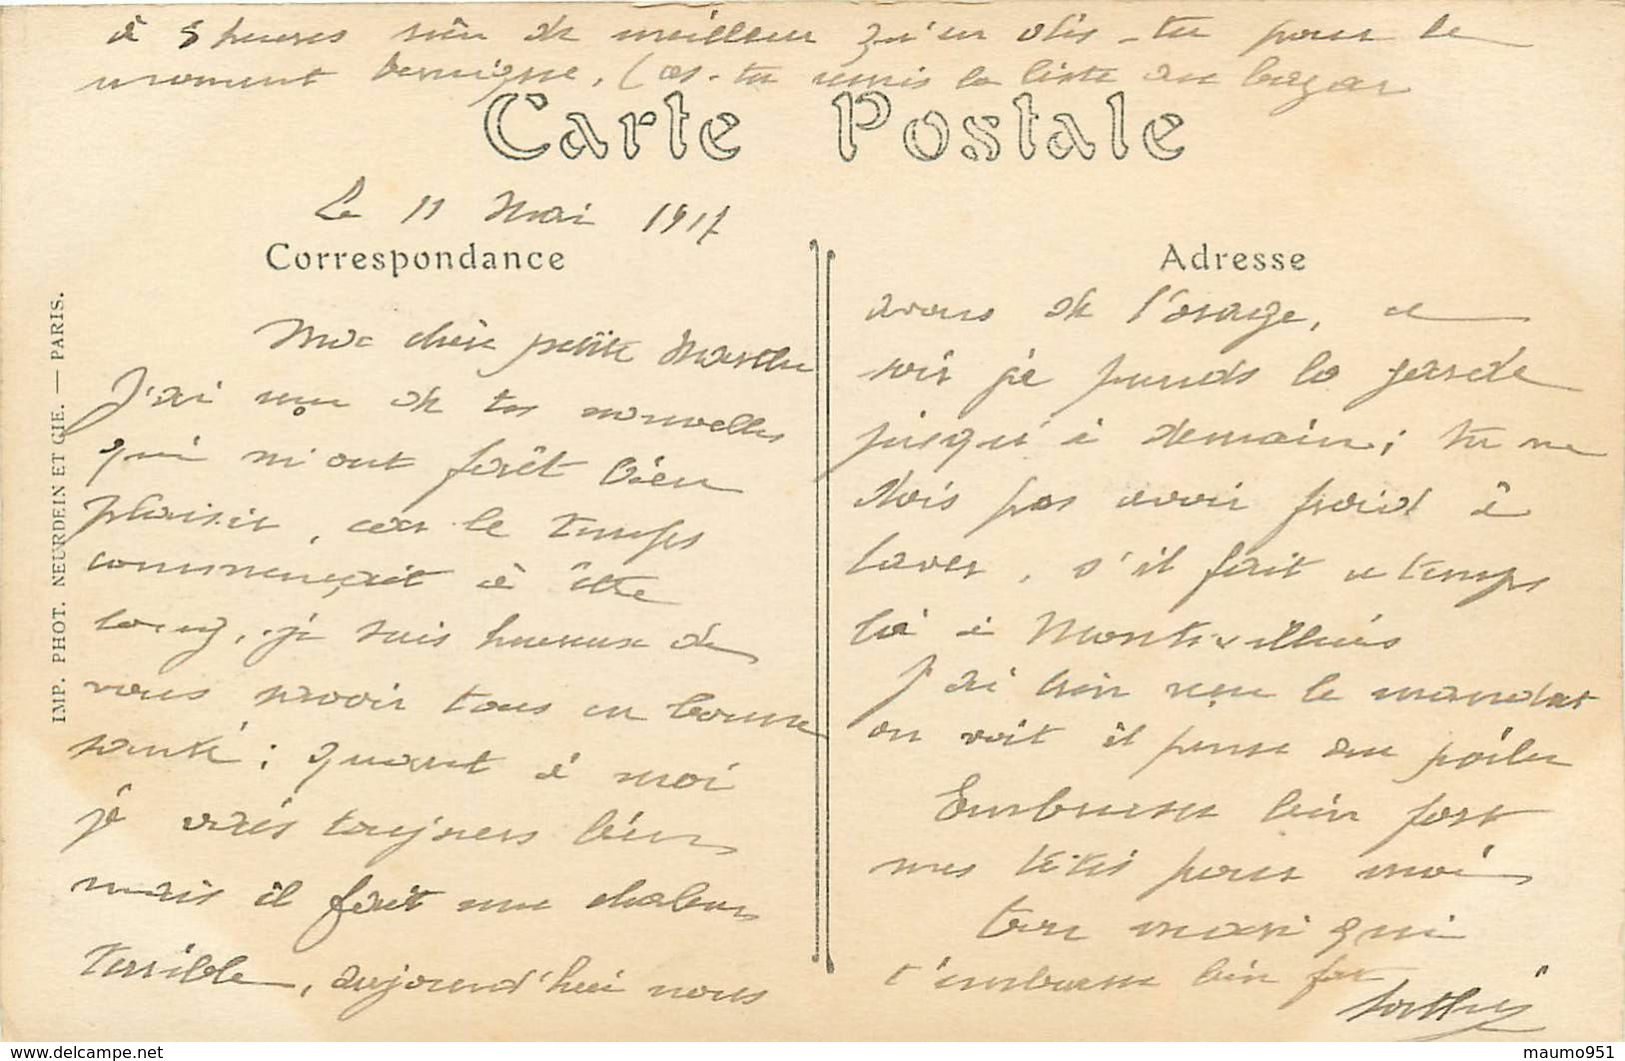 à 5 heures rien de meilleur qu'en dis-tu pour le
moment besuigne, (as-tu remis la liste au bazar
Carte Postale
Le 11 Mai 1917
Correspondance
Ma chère petite Marthe
J'ai reçu de tes nouvelles
qui m'ont forêt bien
plaisir, car le temps
commençait à être
long, je suis heureux de
vous savoir tous en bonne
santé; quant à moi
je vais toujours bien
mais il fait une chaleur
terrible, aujourd'hui nous
Adresse
avons de l'orage, ce
soir je prends la garde
jusqu'à demain; tu ne
dois pas avoir froid à
laver, s'il fait ce temps
là à Montivilliers
J'ai bien reçu le mandat
on voit il pense au poilu
Embrasse bien fort
mes titis pour moi
ton mari qui
t'embrasse bien fort
IMP. PHOT. NEURDEIN ET CIE. — PARIS.
maumo951